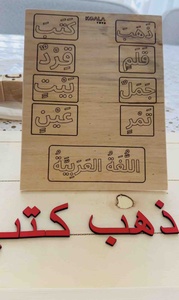 KOALA
ذَهَبَ كَتَبَ
قَلَم قِرْدٌ
جَمَلٌ بَيْتٌ
تَمْرٌ عَيْنٌ
اللُّغَةُ العَرَبِيَّةُ
ذهب كتب